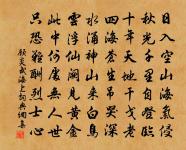 日入空山海氣侵
秋光千里自登臨
十年天地干戈老
四海蒼生吊哭深
水涌神山來白鳥
雲浮仙闕見黃金
此中何處無人世
只恐難酬烈士心
顧炎武海上